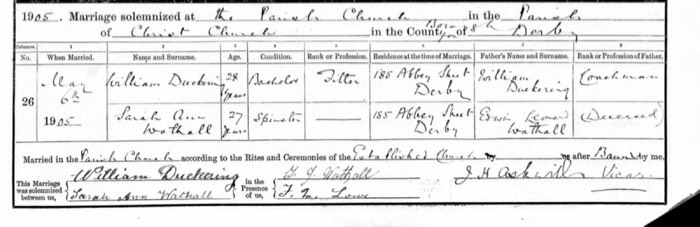 1905. Marriage solemnized at the Parish Church in the Parish
of Christ Church in the County of Derby
Columns:— 1 2 3 4 5 6 7 8
No. When Married. Name and Surname. Age. Condition. Rank or Profession. Residence at the time of Marriage. Father's Name and Surname. Rank or Profession of Father.
26 May 6th 1905 William Duckering 28 years Bachelor Fitter 185 Abbey Street Derby William Duckering Coachman
Sarah Ann Wathall 27 years Spinster —— 185 Abbey Street Derby Edwin Wathall (Deceased)
Married in the Parish Church according to the Rites and Ceremonies of the Established Church by or after Banns by me,
This Marriage was solemnized between us, William Duckering Sarah Ann Wathall in the Presence of us, Wathall F. M. Lowe J H Askwith Vicar